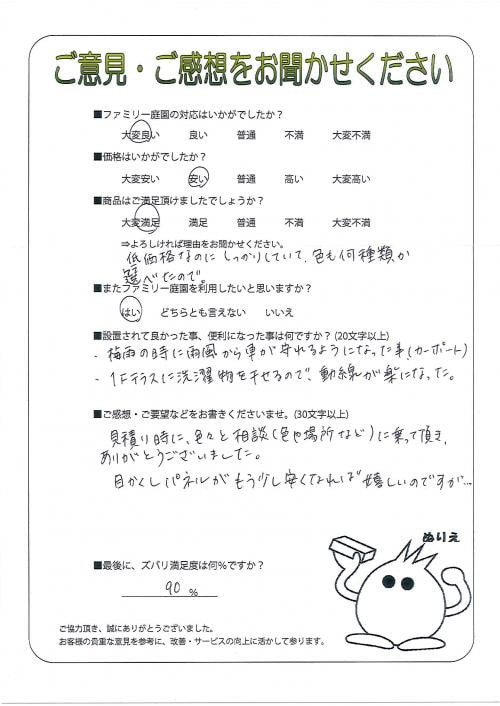 ご意見・ご感想をお聞かせください
■ファミリー庭園の対応はいかがでしたか？
大変良い 良い 普通 不満 大変不満
■価格はいかがでしたか？
大変安い 安い 普通 高い 大変高い
■商品はご満足頂けましたでしょうか？
大変満足 満足 普通 不満 大変不満
⇒よろしければ理由をお聞かせください。
低価格なのにしっかりしていて、色も何種類か
選べたので。
■またファミリー庭園を利用したいと思いますか？
はい どちらとも言えない いいえ
■設置されて良かった事、便利になった事は何ですか？(20文字以上)
・梅雨の時に雨風から車が守れるようになった事(カーポート)
・1Fテラスに洗濯物を干せるので、動線が楽になった。
■ご感想・ご要望などをお書きくださいませ。(30文字以上)
見積り時に、色々と相談(色や場所など)に乗って頂き、
ありがとうございました。
目かくしパネルがもう少し安くなれば嬉しいのですが…
ぬりえ
■最後に、ズバリ満足度は何％ですか？
90 %
ご協力頂き、誠にありがとうございました。
お客様の貴重な意見を参考に、改善・サービスの向上に活かして参ります。